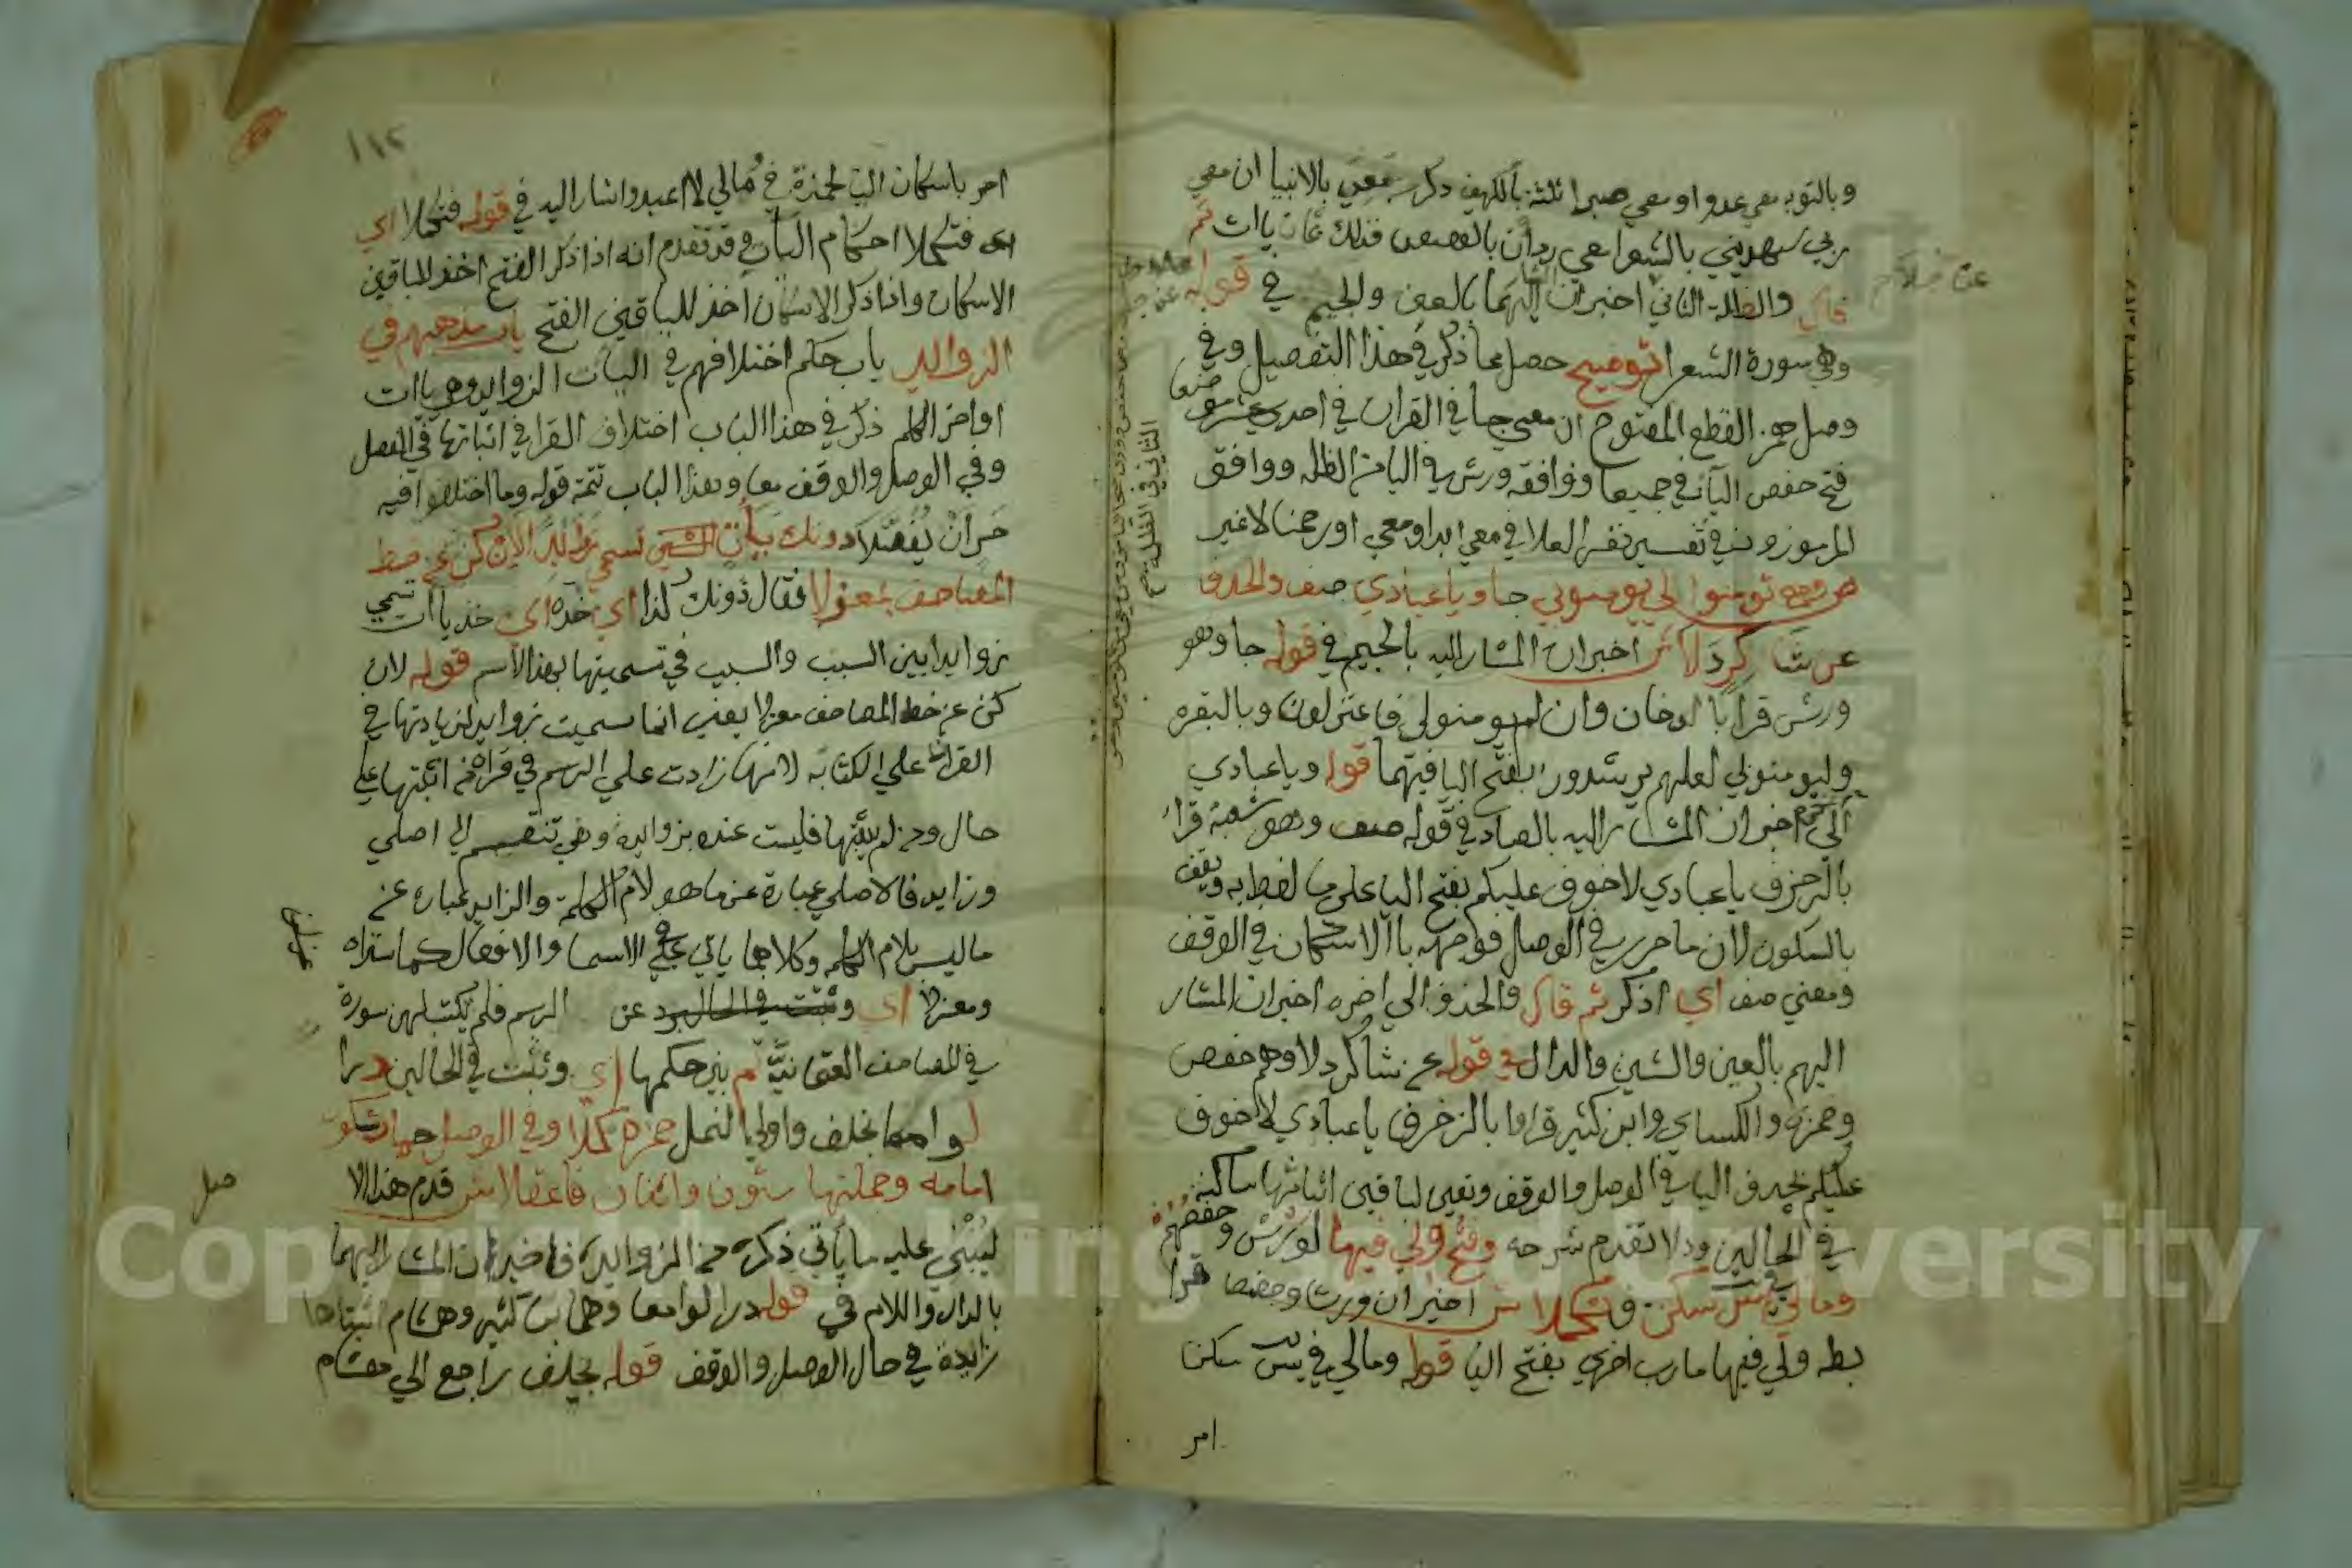 وبالتوبه معي عدوا ومعي صبرا ثلثة بالكهف ذكر معي بالانبيا ان معي
ربي سيهديني بالشعرا معي ردان بالقصص فذلك ثمان ياات ثم
قال والظلة الثاني اخبر ان المشار اليهما بالعين والجيم في قوله
وهي سورة الشعرا توضيح حصل مما ذكر في هذا التفصيل وفي
وصل همز القطع المفتوح ان معي جا في القران في احدي عشر موضعا
فتح حفص اليا في جميعها ووافقه ورش في اليا من الظله ووافق
المرموزون في تفسير نفر العلا في معي ابدا ومعي اورحمنا لاغير
ومع تومنوا لي يومنوا بي جا ويا عبادي صف والحذف
عن شاكر دلا ش اخبر ان المشار اليه بالجيم في قوله جا وهو
ورش قرا بالدخان وان لم يومنوا لي فاعتزلون وبالبقره
وليومنوا بي لعلهم يرشدون بفتح اليا فيهما قوله ويا عبادي
الي اخره اخبر ان المشار اليه بالصاد في قوله صف وهو شعبة قرا
بالزخرف يا عبادي لاخوف عليكم بفتح اليا علي ما لفظ به ويقف
بالسكون لان ما حرك في الوصل فوجهه باالاسكان في الوقف
ومعني صف اي اذكر ثم قال والحذف الي اخره اخبر ان المشار
اليهم بالعين والشين والدال في قوله عن شاكر دلا وهم حفص
وحمزه والكساي وابن كثير قراوا بالزخرف يا عبادي لاخوف
عليكم بحذف اليا في الوصل والوقف وتعين لباقين اثباتها ساكنة
في الحالين ودلا تقدم شرحه وفتح ولي فيها لورش وحفصهم
ومالي في يس سكن فتكملا ش اخبر ان ورشا وحفصا قرا
بطه ولي فيها مارب اخري بفتح اليا قوله ومالي في يس سكن
امر
الثاني في الظلة
١١٢
امر باسكان اليا لحمزة في مالي لا اعبد واشار اليه في قوله فتكملا اي
اي فتكملا احكام اليات وقد تقدم انه اذا ذكر الفتح اخذ للباقين
الاسكان واذا ذكر الاسكان اخذ للباقين الفتح باب مذهبهم في
الزوائد باب حكم اختلافهم في اليات الزوايد وهي ياات
اواخر الكلم ذكر في هذا الباب اختلاف القرا في اثباتها في الوصل
وفي الوصل والوقف معا وهذا الباب تتمة قوله وما اختلفوا فيه
حر ان يفصلا ودونك ياات تسمي زوائدا لان كن عن خط
المصاحف معزلا فقال دونك كذا اي خذه اي خذ ياات تسمي
زوايدا بين السبب والسبب في تسميتها بهذا الاسم قوله لان
كن عن خط المصاحف معزلا يعني انما سميت زوايد لزيادتها في
القراة علي الكتابه لانها زادت علي الرسم في قراة من اثبتها علي
حال ومن لم يثبتها فليست عنده بزوايد وهي تنقسم الي اصلي
وزايد فالاصلي عبارة عن ما هو لام الكلمة والزايد عباره عن
ما ليس بلام الكلمه وكلاهما ياتي في الاسما والافعال كما ستراه
ومعزلا اي عن الرسم فلم تكتب لهن سورة
في المصاحف العثمانية ثم بين حكمها اي وتثبت في الحالين درا
لوامعا بخلف واولي النمل حمزه كملا وفي الوصل حماد شكور
امامه وجملتها ستون واثنان فاعقلا ش قدم هذا الا
ليبني عليه ما ياتي ذكره من الزوايد فاخبر ان المشار اليهما
بالدال واللام في قوله درا لوامعا وهما ابن كثير وهشام اثبتاها
زايدة في حال الوصل والوقف قوله بخلف راجع الي هشام
صل
Copyright © King Saud University